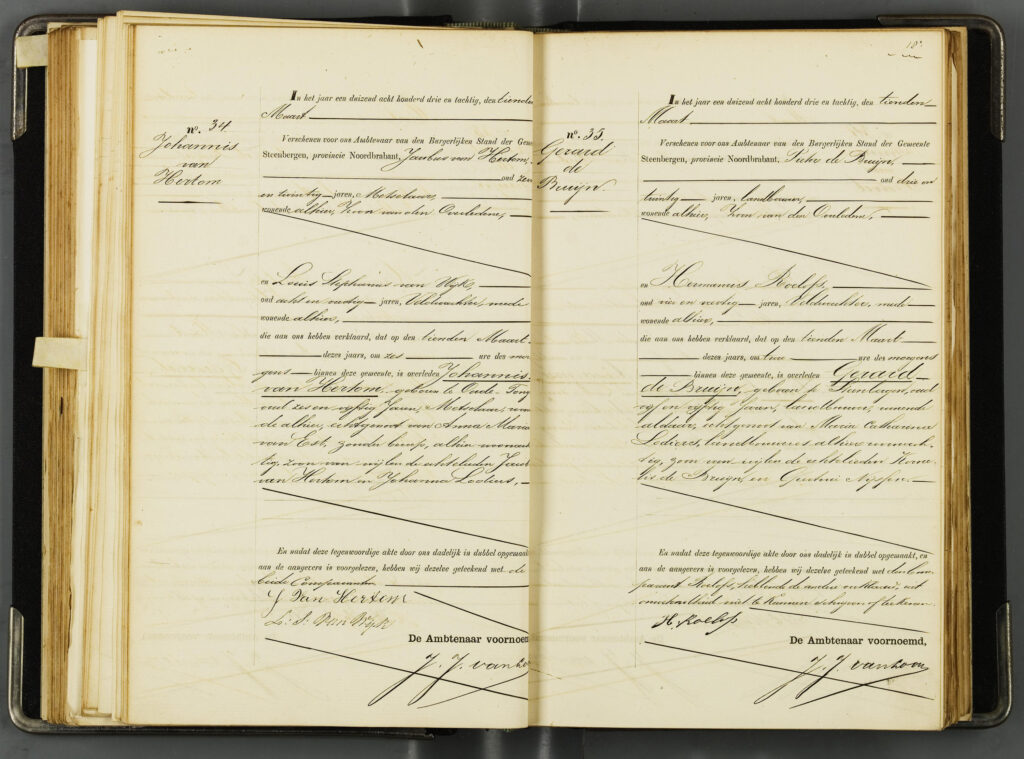 nº. 34
Johannis
van
Hertom
In het jaar een duizend acht honderd drie en tachtig, den tienden
Maart
Verschenen voor ons Ambtenaar van den Burgerlijken Stand der Gemeente
Steenbergen, provincie Noordbrabant, Jacobus van Hertom,
oud zes
en twintig jaren, Metselaar,
wonende alhier, Zoon van den Overledene,
en Louis Stephanus van Wijk,
oud acht en veertig jaren, Veldwachter, mede
wonende alhier,
die aan ons hebben verklaard, dat op den tienden Maart
dezes jaars, om zes ure des mor
gens binnen deze gemeente, is overleden Johannis
van Hertom, geboren te Oude-Tong
oud zes en vijftig Jaren, Metselaar, wonen
de alhier, echtgenoot van Anna Maria
van Est, zonder beroep, alhier woonach
tig, zoon van wijlen de echtelieden Jaco
van Hertom en Johanna
En nadat deze tegenwoordige akte door ons dadelijk in dubbel opgemaakt
aan de aangevers is voorgelezen, hebben wij dezelve geteekend met de
beide Comparanten
J Van Hertom
L: S. Van Wijk
De Ambtenaar voornoemd
J. J. van Loon
nº. 35
Gerard
de
Bruijn
In het jaar een duizend acht honderd drie en tachtig, den tienden
Maart
Verschenen voor ons Ambtenaar van den Burgerlijken Stand der Gemeente
Steenbergen, provincie Noordbrabant, Pieter de Bruijn,
oud drie en
twintig jaren, landbouwer,
wonende alhier, Zoon van den Overledene,
en Hermanus Roelofs,
oud vier en veertig jaren, Veldwachter, mede
wonende alhier,
die aan ons hebben verklaard, dat op den tienden Maart
dezes jaars, om twee ure des morgens
binnen deze gemeente, is overleden Gerard
de Bruijn, geboren te Steenbergen, oud
en vijftig Jaren, landbouwer, wonende
aldaar, echtgenoot van Maria Catharina
landbouweres alhier woonach
tig, zoon van wijlen de echtelieden Corne
lis de Bruijn en
En nadat deze tegenwoordige akte door ons dadelijk in dubbel opgemaakt, en
aan de aangevers is voorgelezen, hebben wij dezelve geteekend met den Com
parant Roelofs, hebbende de andere verklaard, uit
onbedrevenheid niet te kunnen schrijven of teekenen.
H. Roelofs
De Ambtenaar voornoemd,
J. J. van Loon